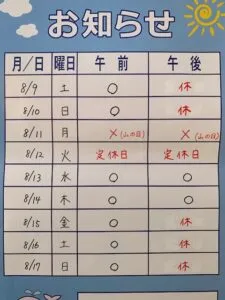 お知らせ
月/日 曜日 午前 午後
8/9 土 ○ 休
8/10 日 ○ 休
8/11 月 ×(山の日) ×(山の日)
8/12 火 定休日 定休日
8/13 水 ○ ○
8/14 木 ○ ○
8/15 金 ○ 休
8/16 土 ○ 休
8/17 日 ○ 休